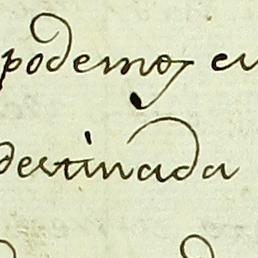 podemos
destinada